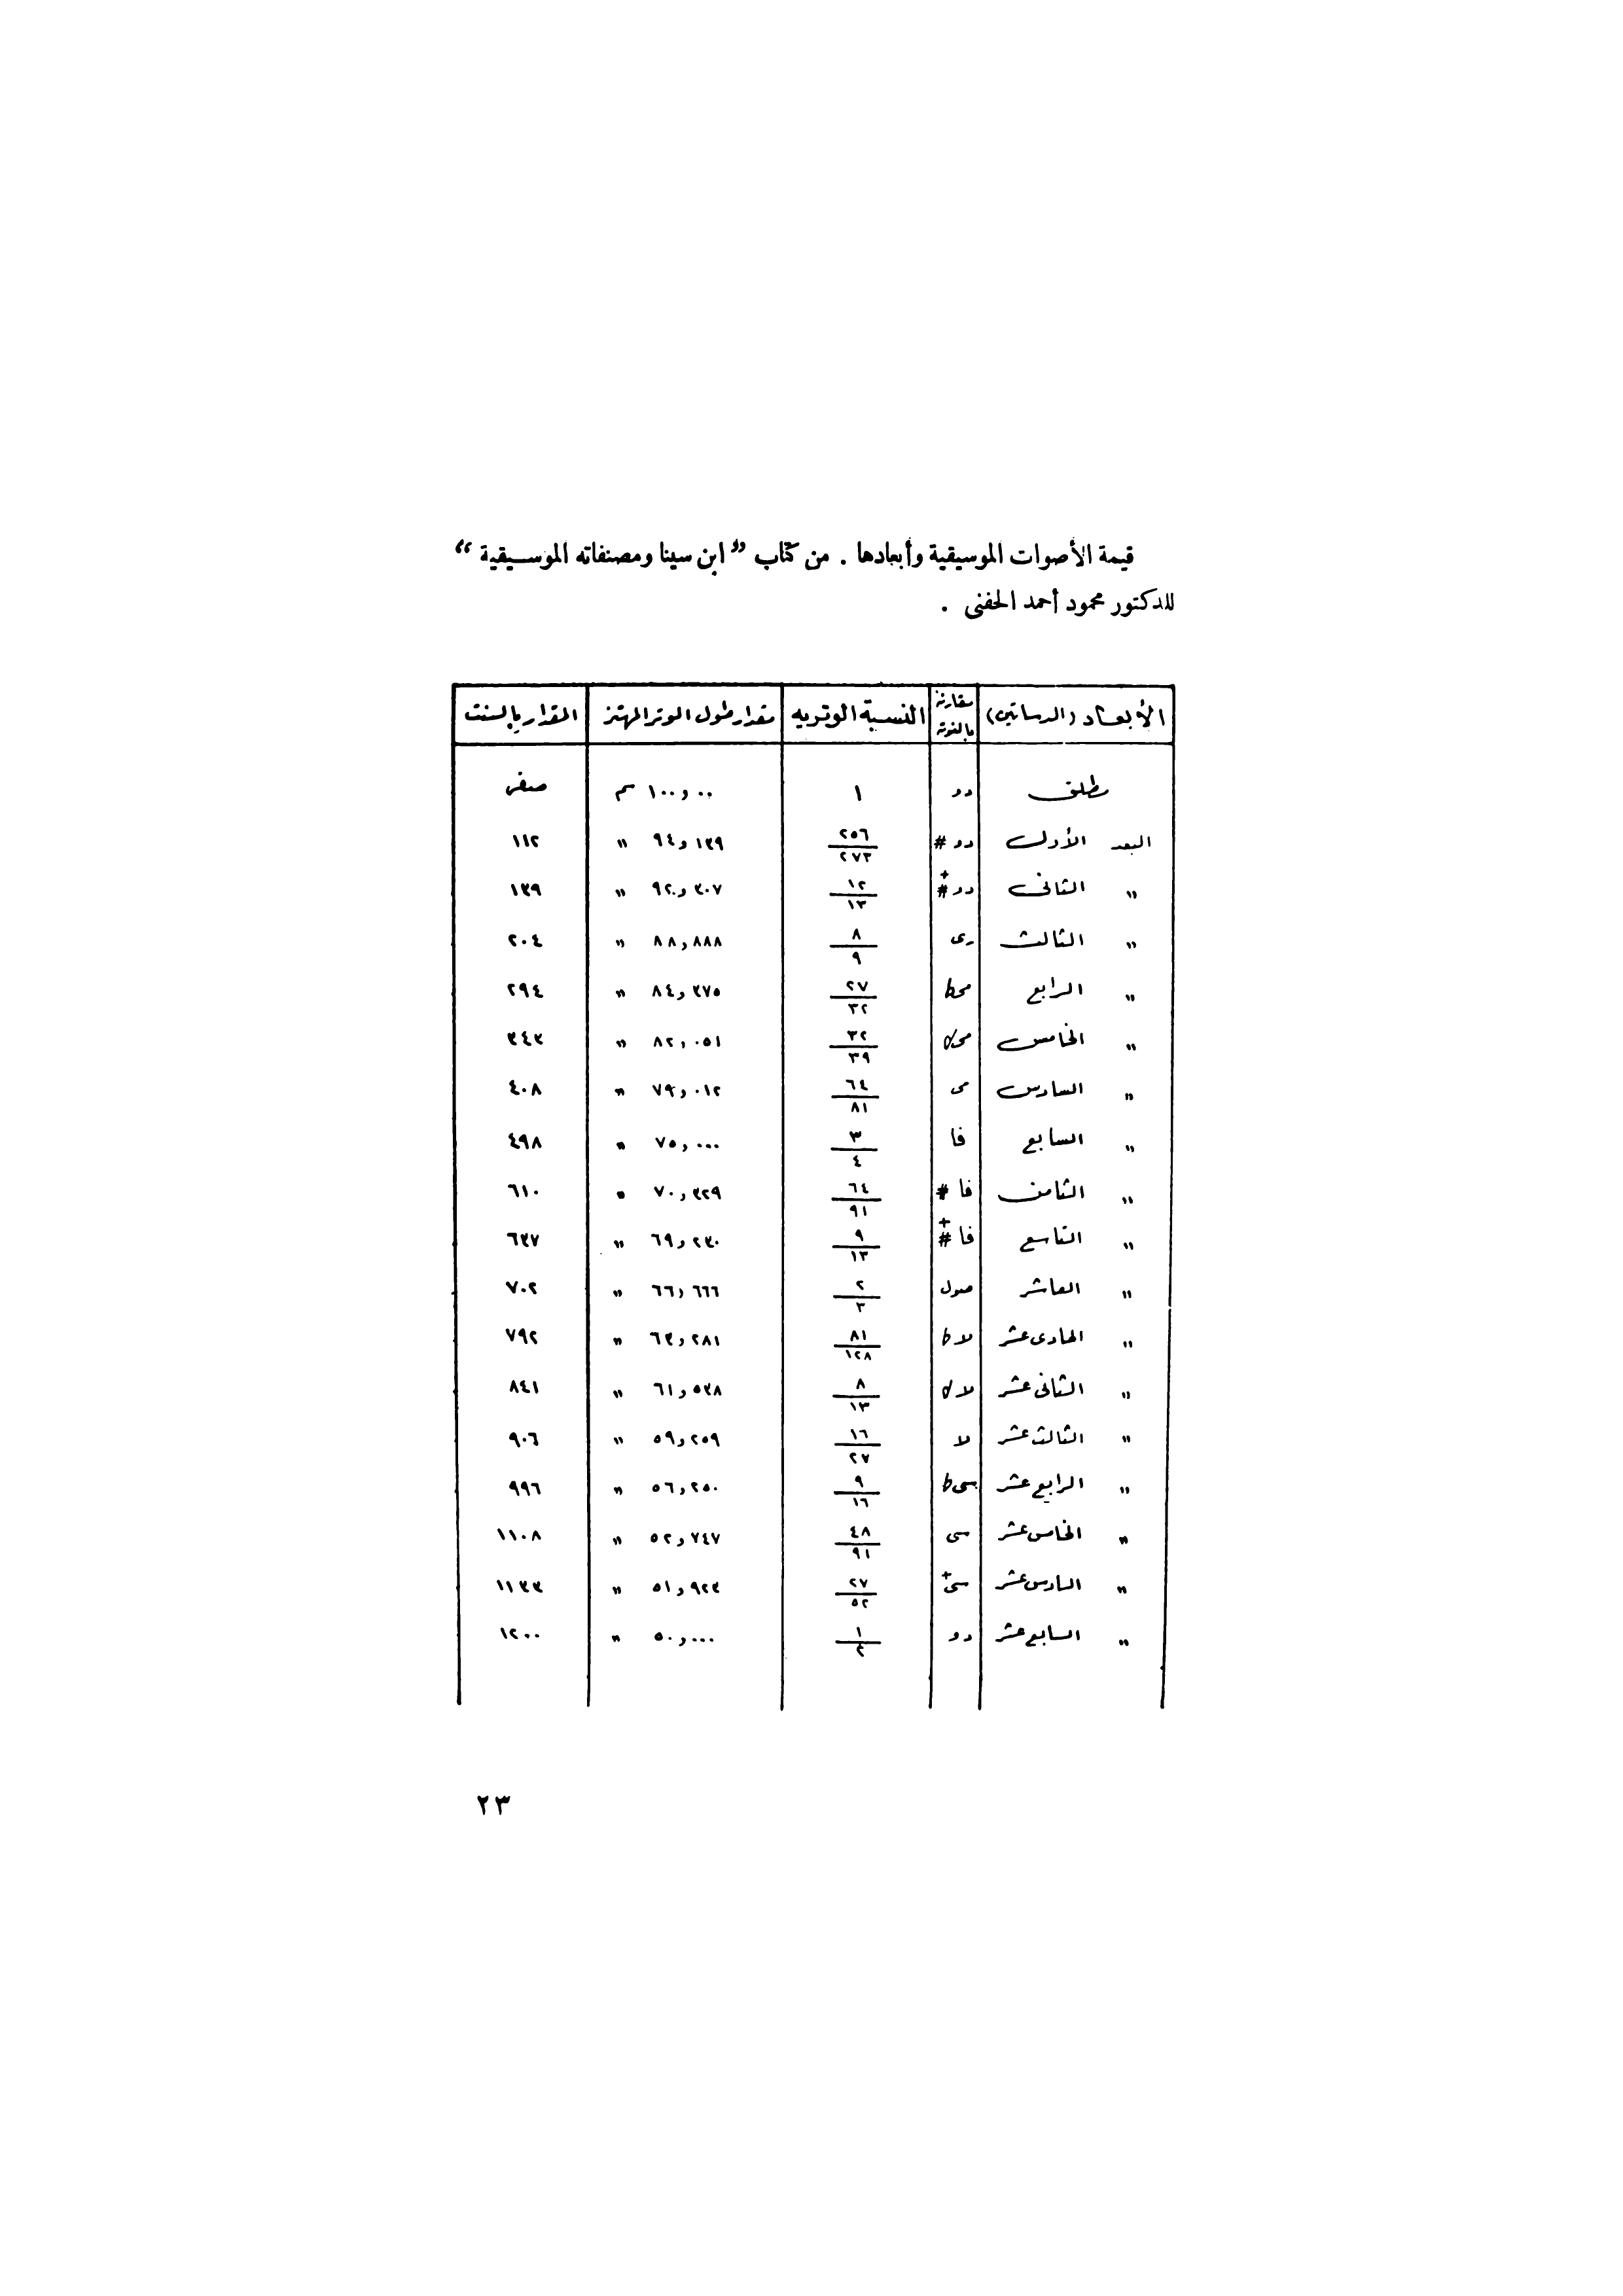 قيمة الأصوات الموسيقية وأبعادها . من كتاب " ابن سينا ومصنفاته الموسيقية "
للدكتور محمود أحمد الحفنى .
الأبعاد (الدساتين) مقارنة بالنوتة النسبة الوترية مقدار طول الوتر المهتز المقدار بالسنت
مطلق دو ١ ١٠٠,٠٠ سم صفر
البعد الأول دو # ٢٥٦/٢٧٣ ٩٤,١٣٩ " ١١٢
" الثانى دو #+ ١٢/١٣ ٩٢,٣٠٧ " ١٣٩
" الثالث رى ٨/٩ ٨٨,٨٨٨ " ٢٠٤
" الرابع مى b ٢٧/٣٢ ٨٤,٣٧٥ " ٢٩٤
" الخامس مى ٣٢/٣٩ ٨٢,٠٥١ " ٣٤٣
" السادس مى ٦٤/٨١ ٧٩,٠١٢ " ٤٠٨
" السابع فا ٣/٤ ٧٥,٠٠٠ " ٤٩٨
" الثامن فا # ٦٤/٩١ ٧٠,٣٢٩ " ٦١٠
" التاسع فا #+ ٩/١٣ ٦٩,٢٣٠ " ٦٣٧
" العاشر صول ٢/٣ ٦٦,٦٦٦ " ٧٠٢
" الحادى عشر لا b ٨١/١٢٨ ٦٣,٢٨١ " ٧٩٢
" الثانى عشر لا ٨/١٣ ٦١,٥٣٨ " ٨٤١
" الثالث عشر لا ١٦/٢٧ ٥٩,٢٥٩ " ٩٠٦
" الرابع عشر سى b ٩/١٦ ٥٦,٢٥٠ " ٩٩٦
" الخامس عشر سى ٤٨/٩١ ٥٢,٧٤٧ " ١١٠٨
" السادس عشر سى+ ٢٧/٥٢ ٥١,٩٢٣ " ١١٣٣
" السابع عشر دو ١/٢ ٥٠,٠٠٠ " ١٢٠٠
٢٣